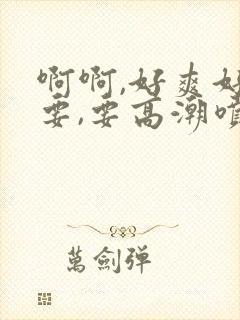 啊啊,好爽好
要,要高潮喷
萬劍弹